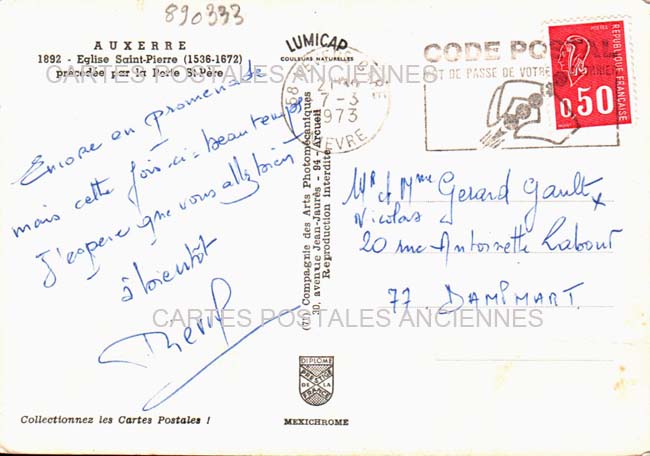 890333
AUXERRE
1892 - Eglise Saint-Pierre (1536-1672)
précédée par la Porte St-Père
LUMICAP
COULEURS NATURELLES
CARTES POSTALES ANCIENNES
Encore en promenade
mais cette fois-ci = beau temps
J'espère que vous allez bien
à bientôt
58
7-3
1973
NIEVRE
CODE POSTAL
MOT DE PASSE DE VOTRE
REPUBLIQUE FRANÇAISE
POSTES
0,50
(71) Compagnie des Arts Photomécaniques
30, avenue Jean-Jaurès - 94 - Arcueil
Reproduction Interdite
Mr et Mme Gerard Gault
Nicolas
20 rue Antoinette
77 DAMPMART
CARTES POSTALES ANCIENNES
DIPLOME
PRESTIGE
DE LA
FRANCE
Collectionnez les Cartes Postales !
MEXICHROME